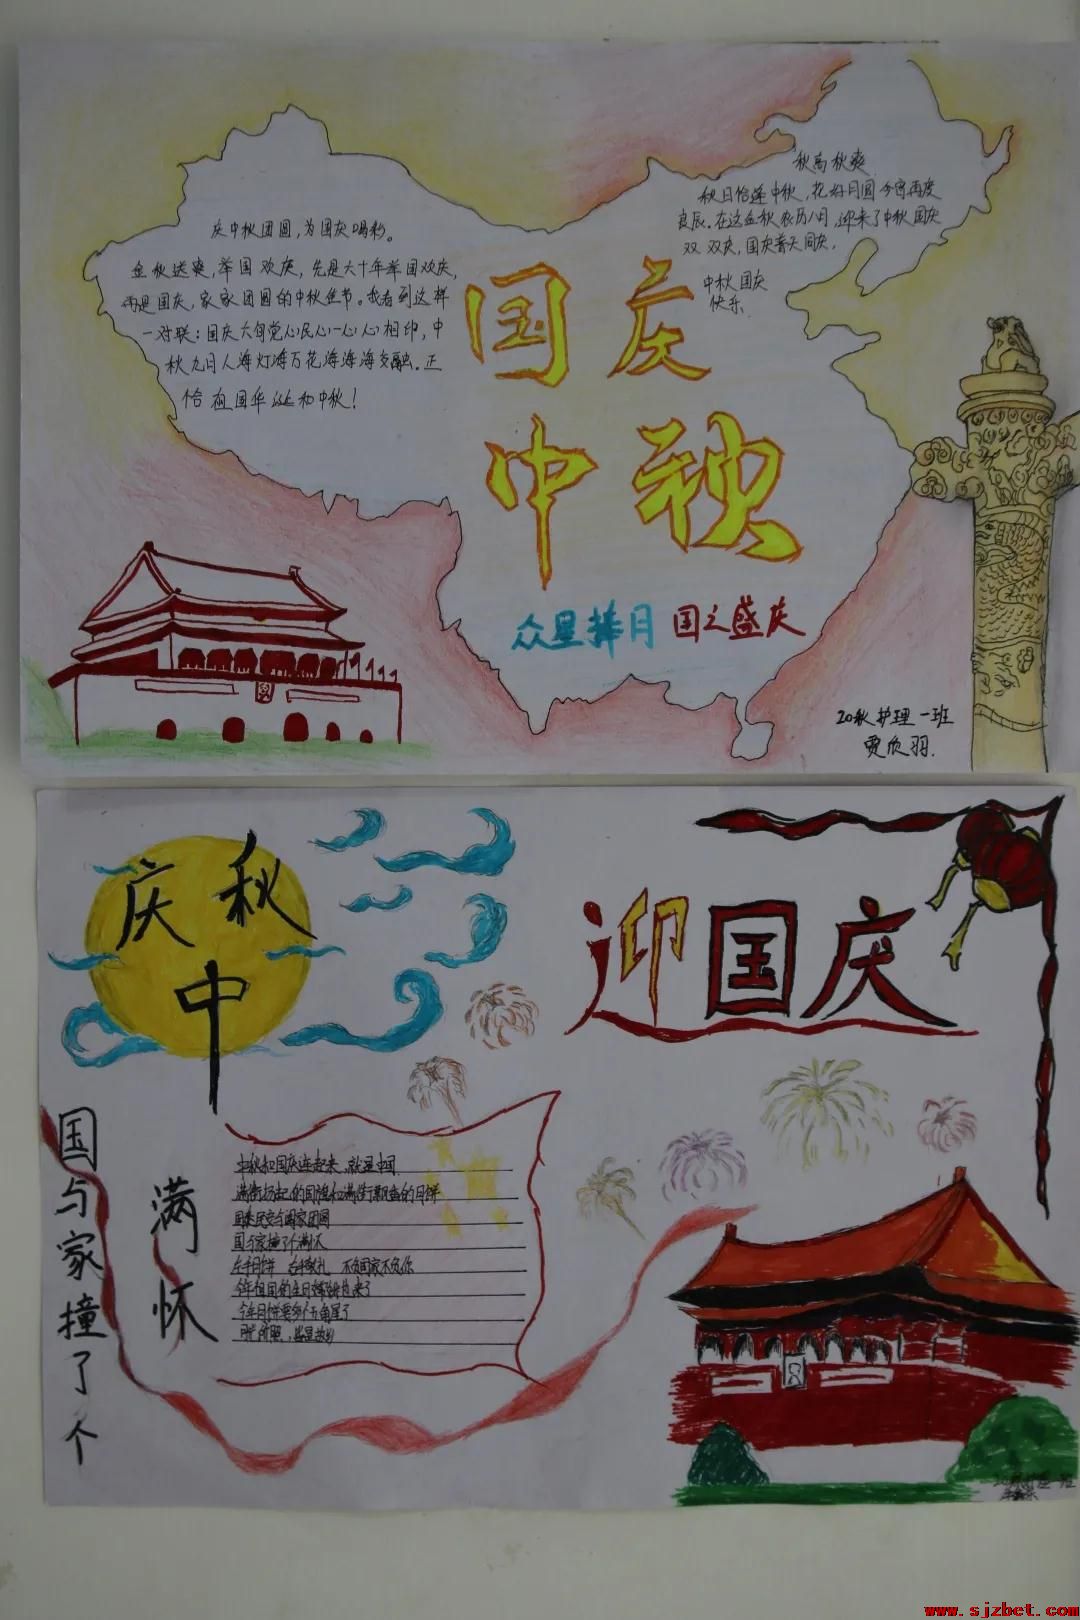 庆中秋团圆,为国庆喝彩。
金秋送爽,举国欢庆,先是六十年举国欢庆,
再是国庆,家家团圆的中秋佳节。我看到这样
一对联:国庆六旬党心民心一心心相印,中
秋九日人海灯海万花海海海交融。正
恰祖国华诞和中秋!
秋高秋爽
秋日恰逢中秋,花好月圆今宵再度
良辰.在这金秋农历八月,迎来了中秋国庆
双双庆,国庆普天同庆.
中秋国庆
快乐
国庆
中秋
众星捧月 国之盛庆
20秋护理一班
贾欣羽.
庆秋
中
迎国庆
国与家撞了个
满怀
中秋和国庆连起来,就是中国
满街扬起的国旗和满街飘香的月饼
国泰民安与阖家团圆
国与家撞了个满怀
左手月饼 右手敬礼 不负国家不负你
今年祖国的生日嫦娥也来了
今年月饼要多个五角星了
www.sjzbet.com